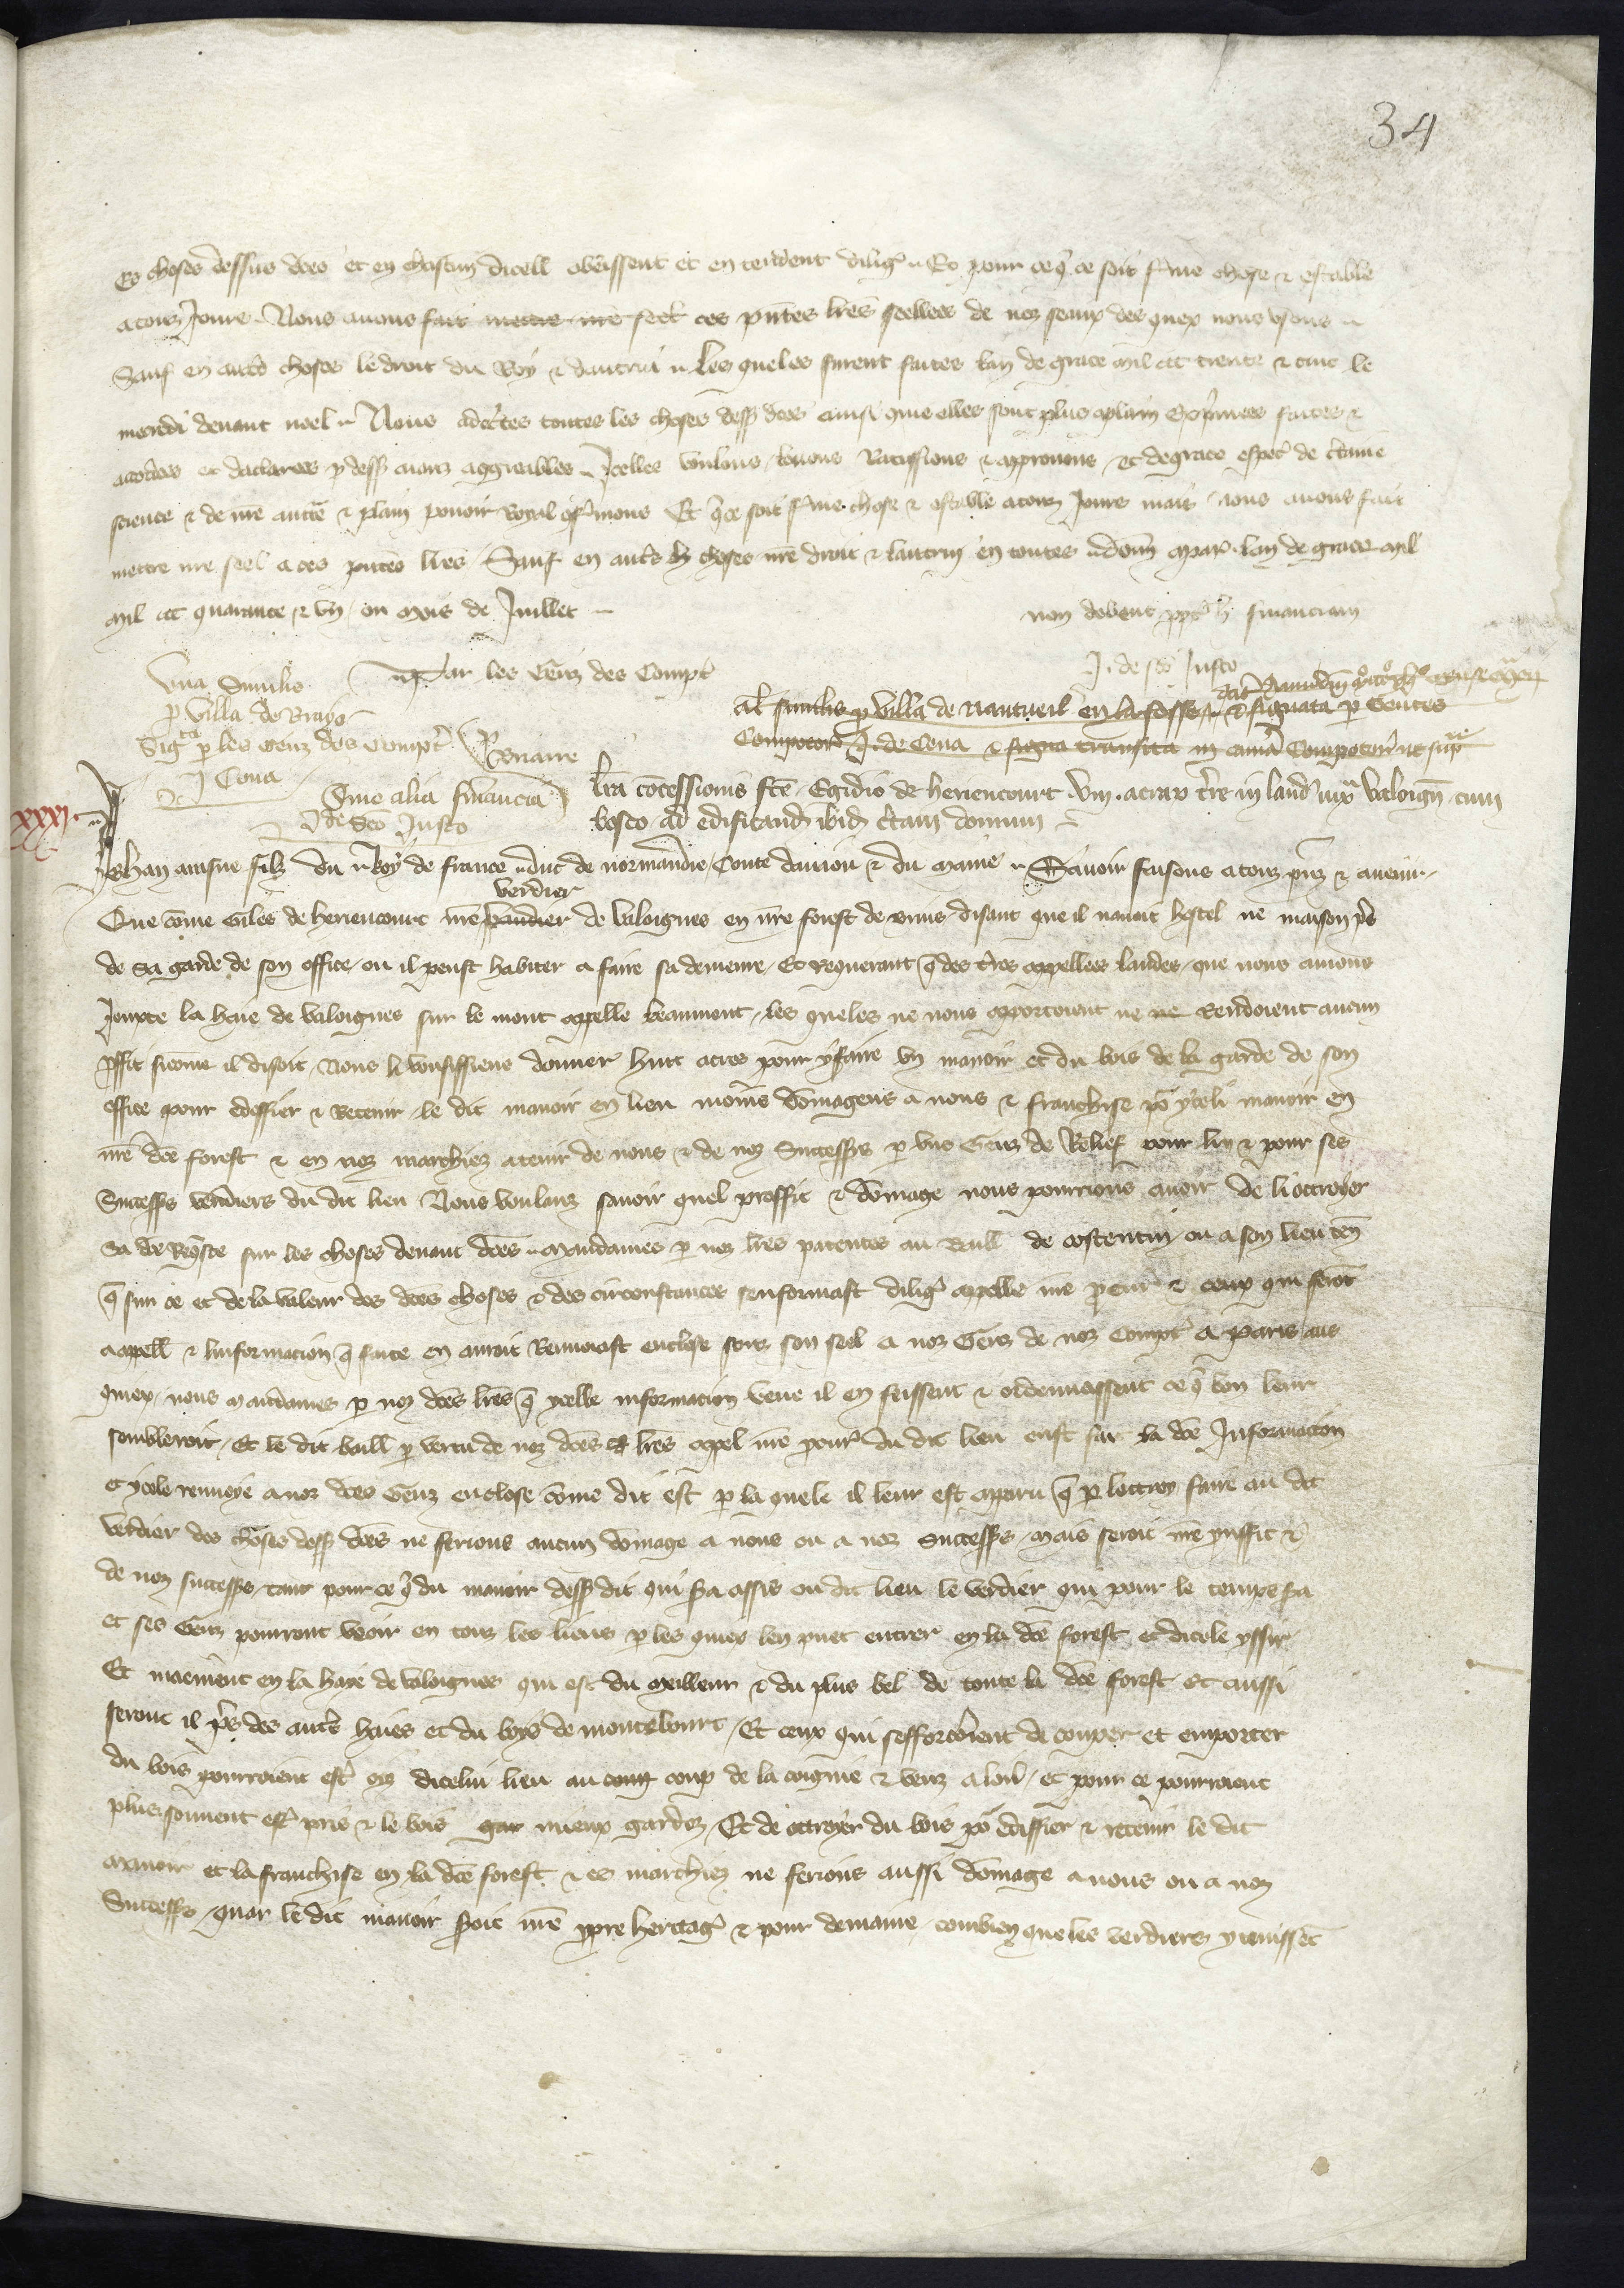 34
Es choses dessus dces et en chascun dicell obeissent et entendent dilig Et pour ce q ce soit ferme chose & estable
a touz jours Nous avons fait mettre nre seel ces pntes lres seellees de noz seaux des quex nous usons
Sauf en autres choses le droit du Roy & dautrui Les queles furent faites lan de grace mil ccc trente & cinc le
mercredi devant noel Nous adcertes toutes les choses dess dces ainsi que elles sont plus aplain exprimees faites &
acordees et declarees p dess avons aggreables Icelles voulons louons Ratiffions & approuvons et de grace espec de certaine
science & de nre aucte & plain pouoir Royal confirmons Et q ce soit ferme chose & estable a touz jours mais nous avons fait
mettre nre seel a ces pntes lres Sauf en autres choses nre droit & lautruy en toutes donn a par lan de grace mil
mil ccc quarante & un ou mois de Juillet
non debent ppt h financiam
J. de sco Justo
Par les Genz des Compt
Una Similis
p villa de Braye
Sig p les Genz des Compt
J Cona
Briarre
al similis p villa de Nantueil en la fosse & signata p Gentes
Compotor J. de Cona & signa transita in cama Compotor ut sup
Sine alia financia
J de Sco Justo
lra concessionis fce Egidio de heriencourt viii. acrar tre in land iuxa Valoign cum
bosco ad edificand ibid ctam domum
xxxi
Jehan ainsne filz du Roy de france duc de normandie Conte danjou & du maine Savoir faisons a touz pnz & avenir
verdier
Que come Giles de heriencourt nre verdier de Valoignes en nre forest de disant que il navoit hostel ne maison pres
de sa garde de son office ou il peust habiter a faire sa demeure Et requerant q des tres appellees landes que nous avions
Jouxte la haie de Valoignes sur le mont appelle beaumont les queles ne nous apportoient ne ne Rendoient aucun
pffit sicome il disoit Nous li voulsissiens donner huit acres pour y faire un manoir et du bois de la garde de son
office pour edeffier & Retenir le dit manoir en lieu moins domageus a nous & franchise po yceli manoir en
nre dce forest & en noz marchiez a tenir de nous & de noz Successrs p uns Genz de Relief pour luy & pour ses
Successrs verdiers du dit lieu Nous voulanz savoir quel proffit & domage nous pourrions avoir de li ottroyer
Sa dce Reqste sur les choses devant dces mandames p noz lres patentes au Baill de costentin ou a son lieu ten
q sur ce et de la valeur des dces choses & des circonstances senformast dilig appelle nre pcur & ceux qui seroit
a appell & linformacion q faite en auroit Renvoiast enclose souz son seel a noz Genz de noz Compt a Paris aus
quex nous mandames p noz dces lres q ycelle informacion veue il en feissent & ordenassent ce q bon leur
sembleroit Et le dit baill p vertu de noz dces lres appel nre pcur du dit lieu eust fait la dce Informacion
et ycele renvoye a noz dces Genz enclose come dit est p la quele il leur est apparu q p lottroy faire au dit
verdier des choses dess dces ne ferions aucun domage a nous ou a noz Successrs Mais seroit nre prffit &
de noz successrs tant pour ce q du manoir dess dit qui sera assis ou dit lieu le verdier qui pour le temps sera
et ses Genz pourront veoir en touz les lieus p les quiex len puet entrer en la dce forest et dicele yssir
Et maement en la haye de Valoignes qui est du meilleur & du plus bel de toute la dce forest Et aussi
seront il pres des autres haies et du boys de monteburc Et ceux qui sefforceroient de couper et emporter
du bois pourroient estre oiz dicelui lieu au coup de la coignie & venz a lour et pour ce pourroient
plus souvent estre pris & le bois gar mieux gardez Et de ottroyer du bois po ediffier & retenir le dit
manoir et la franchise en la dce forest & es marchiez ne ferions aussi domage a nous ou a noz
Successrs quar le dit manoir seroit nre ppre heritage & pour demaine combien que les verdiers y tenissent